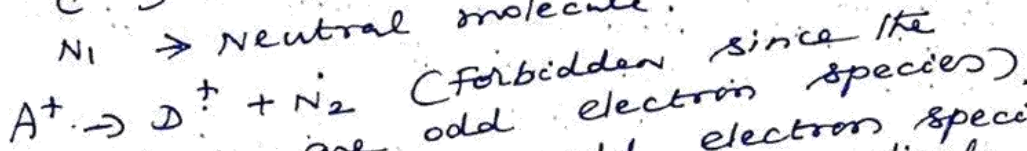 N1 → Neutral molecule.
A⁺. → D⁺. + Ṅ2 (Forbidden since the
odd electron species).
electron speci